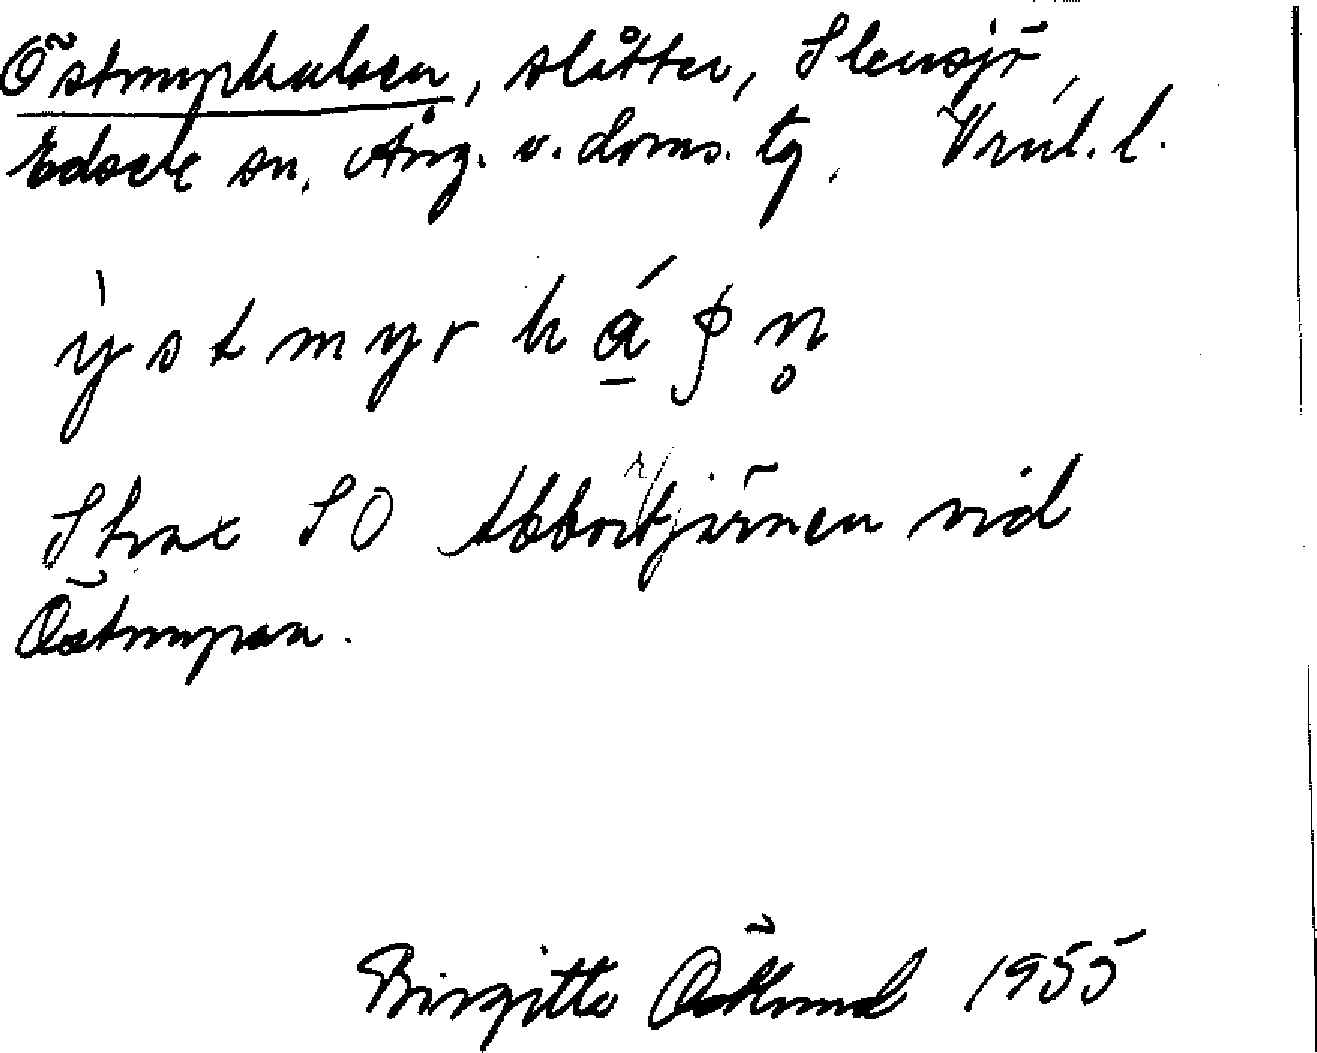 Östmyrhalsen, slåtter, Stensjö,
Edsele sn, Ång. v. doms. tg, Vnl. l.
ỳstmyrhá̱ʂn̥
Strax SO Abborrtjärnen vid
Östmyran.
Birgitta Östlund 1955